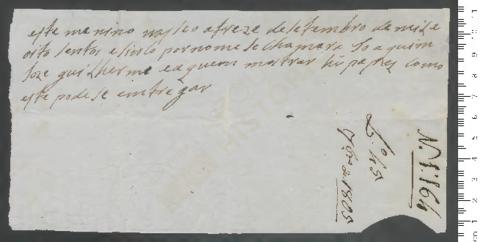 este menino nasseo atreze desetembro de mil e
oito sentos esinco por nome se chamara Joaquim
Joze guilherme e aquem mostrar hũ papel como
este pode se emtregar
Lº 45
1805
Nº 1:164